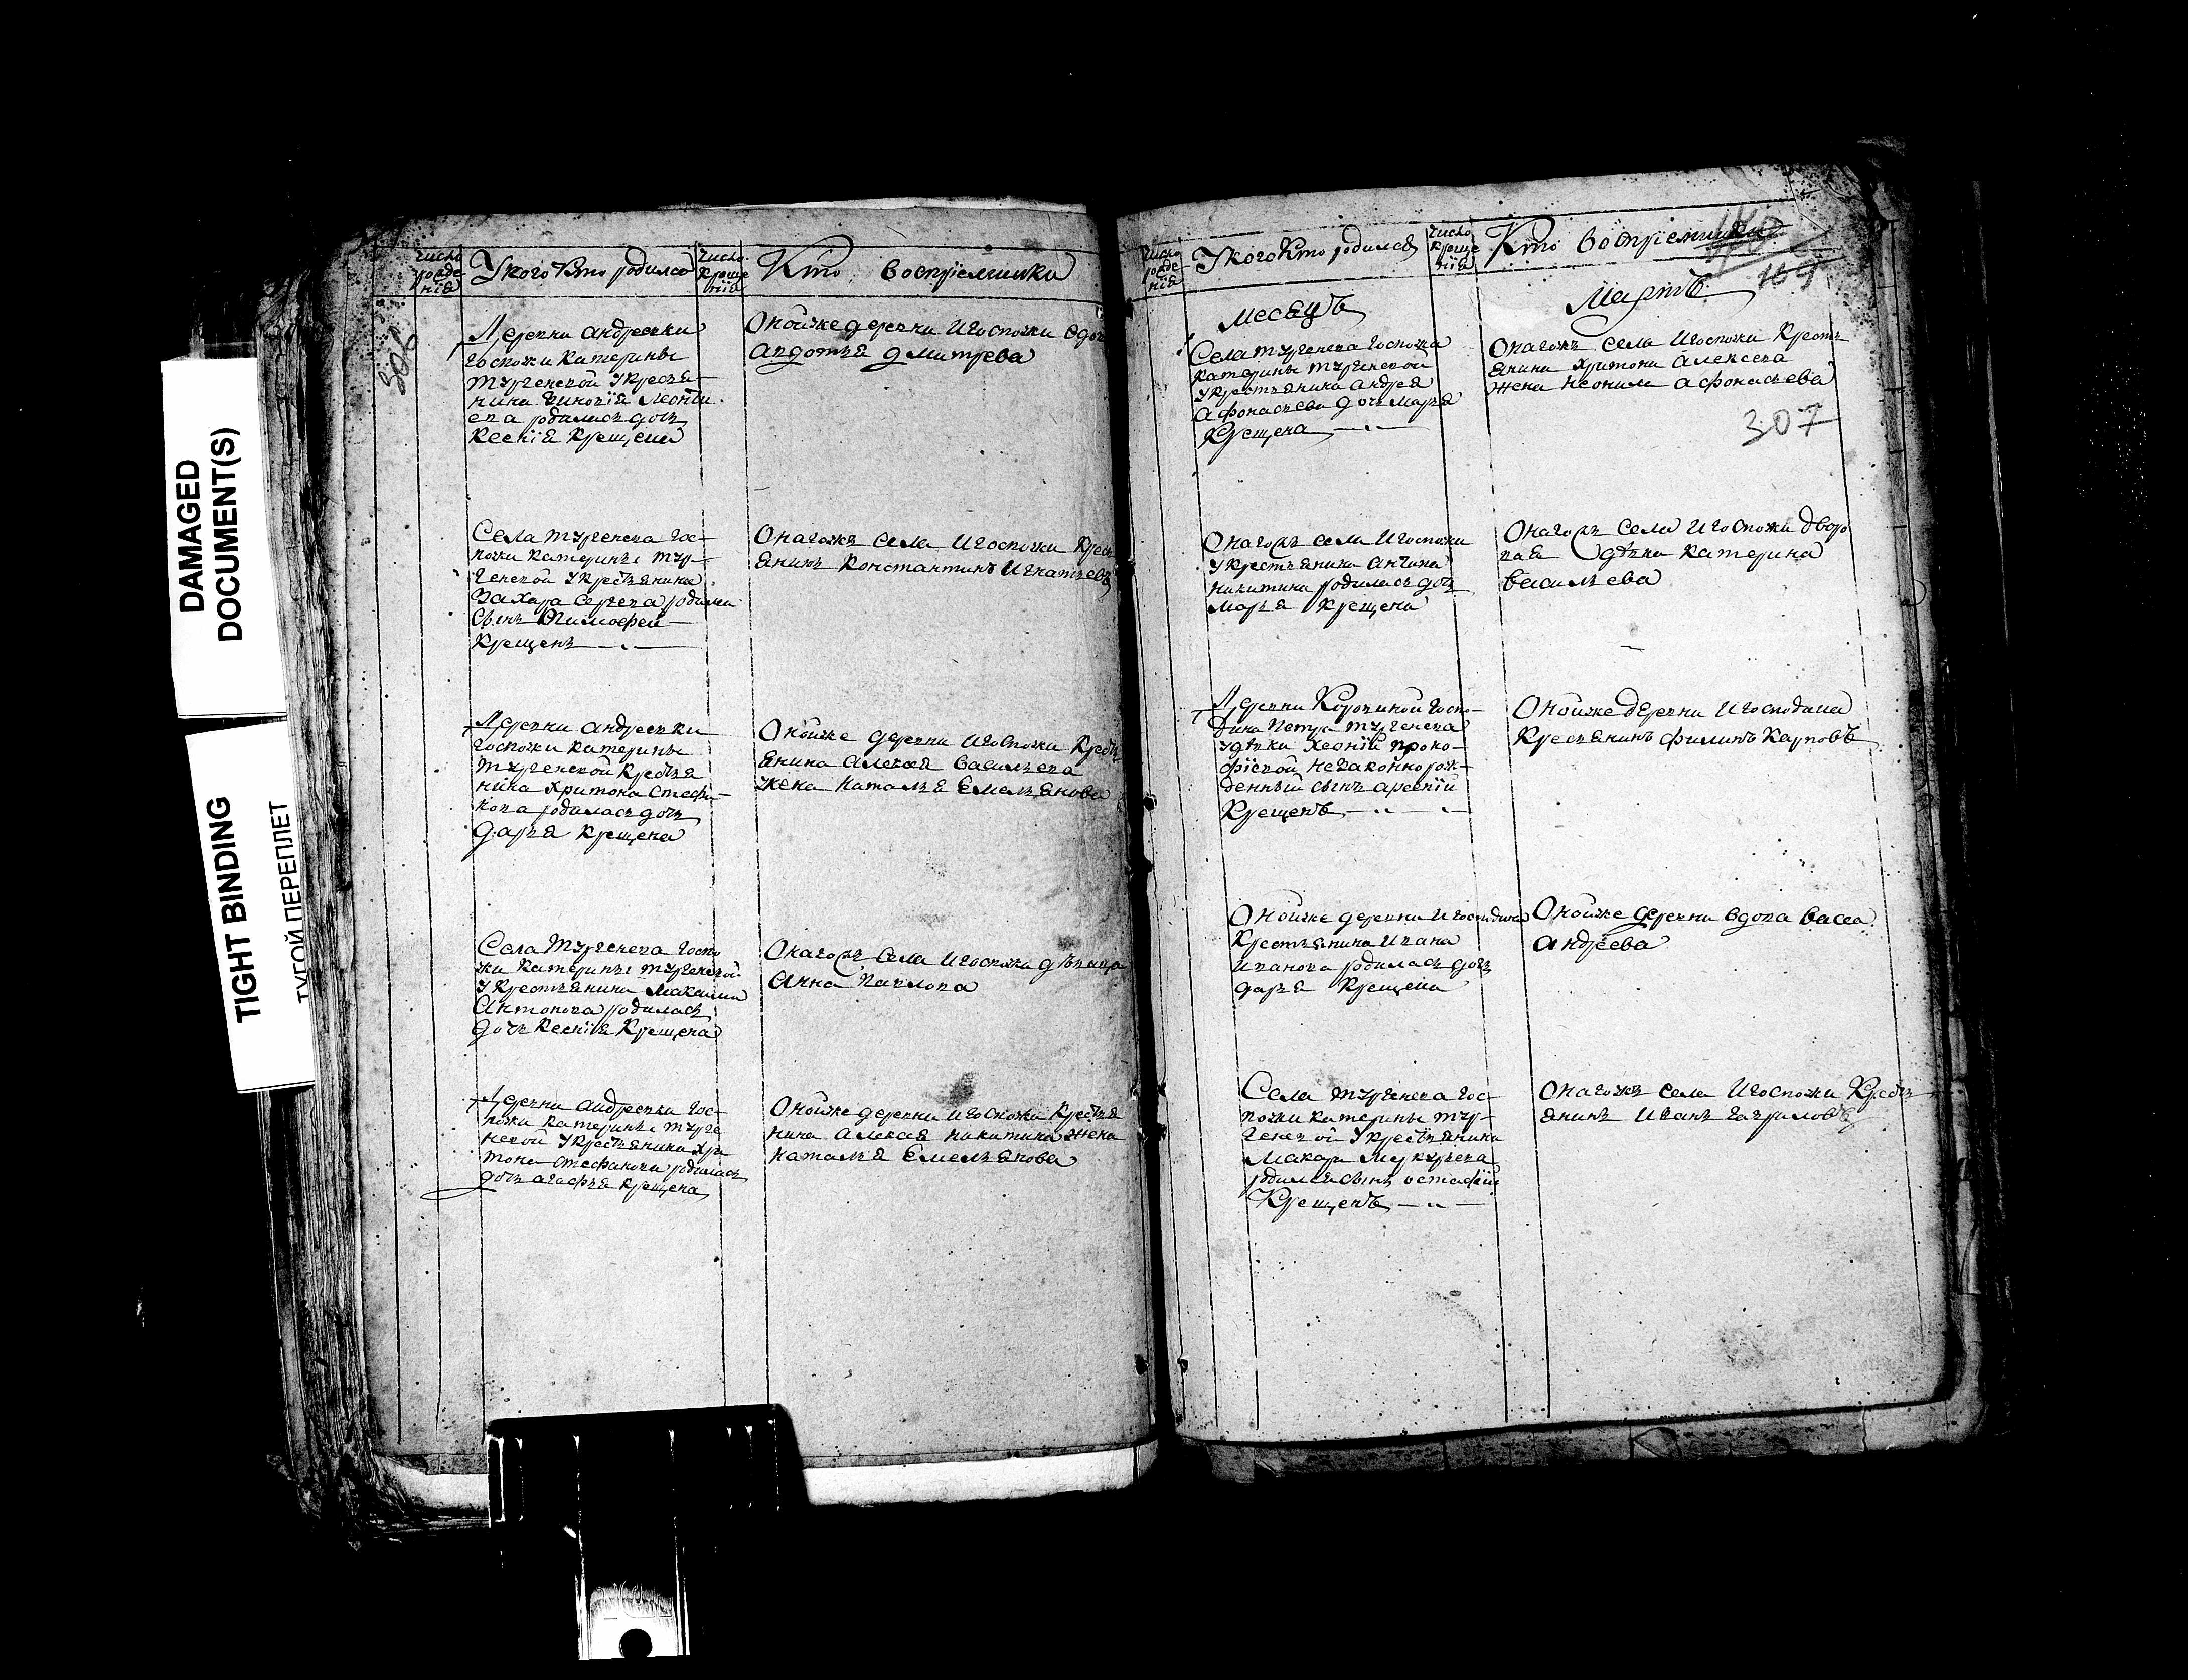 DAMAGED
DOCUMENT(S)
TIGHT BINDING
ТУГОЙ ПЕРЕПЛЕТ
306
число рожде нїя
У кого кто родился
число креще нїя
Кто воспрїемники
Деревни андреевки
госпожи катерины
тургеневой У кресья
нина Леонтї
ева родилась дочь
ксенїя крещена
Онойже деревни И госпожи вдова
авдотья дмитрева
Села тургенева гос
пожи катерины тур
геневой У крестьянина
Захара Сергева родился
Сынъ Тимофей
крещенъ
Онагожъ села И госпожи крест
янинъ константинъ Игнатьевъ
Деревни андреевки
госпожи катерины
тургеневой крестья
нина Харитона стефа
нова родилась дочь
дарья крещена
Онойже деревни И госпожи крестъ
янина алексея васильева
жена наталья Емельянова
Села тургенева госпо
жи катерины тургеневой
У крестьянина Максима
Антонова родилась
дочь ксенїя крещена
Онагожъ села И госпожи девица
анна павлова
Деревни андреевки гос
пожи катерины турге
невой У крестьянина хри
тона стефанова родилась
дочь агафья крещена
Онойже деревни И госпожи крестья
нина алексея никитина жена
наталья Емельянова
число рожде нїя
У кого кто родился
число креще нїя
Кто воспрїемники
109
месяцъ
Мартъ
Села тургенева госпожи
катерины тургеневой
У крестьянина андрея
афонасьева дочь Марья
крещена
Онагожъ села И госпожи крестъ
янина Хритона алексеева
жена неонила афонасьева
307
Онагожъ села И госпожи
У крестьянина
никитина родилась дочь
марья крещена
Онагожъ села И госпожи дворо
вая девка катерина
васильева
Деревни Коропиной госпо
дина петра тургенева
У девки Хеонїи проко
фїевой незаконно рож
денный сынъ арсенїй
крещенъ
Онойже деревни И господина
крестьянинъ филипъ карповъ
Онойже деревни И господина
крестьянина Ивана
Иванова родилась дочь
дарья крещена
Онойже деревни вдова васса
андреева
Села тургенева гос
пожи катерины тур
геневой У крестьянина
макара
родился сынъ остафїй
крещенъ
Онагожъ села И госпожи крестъ
янинъ Иванъ гавриловъ